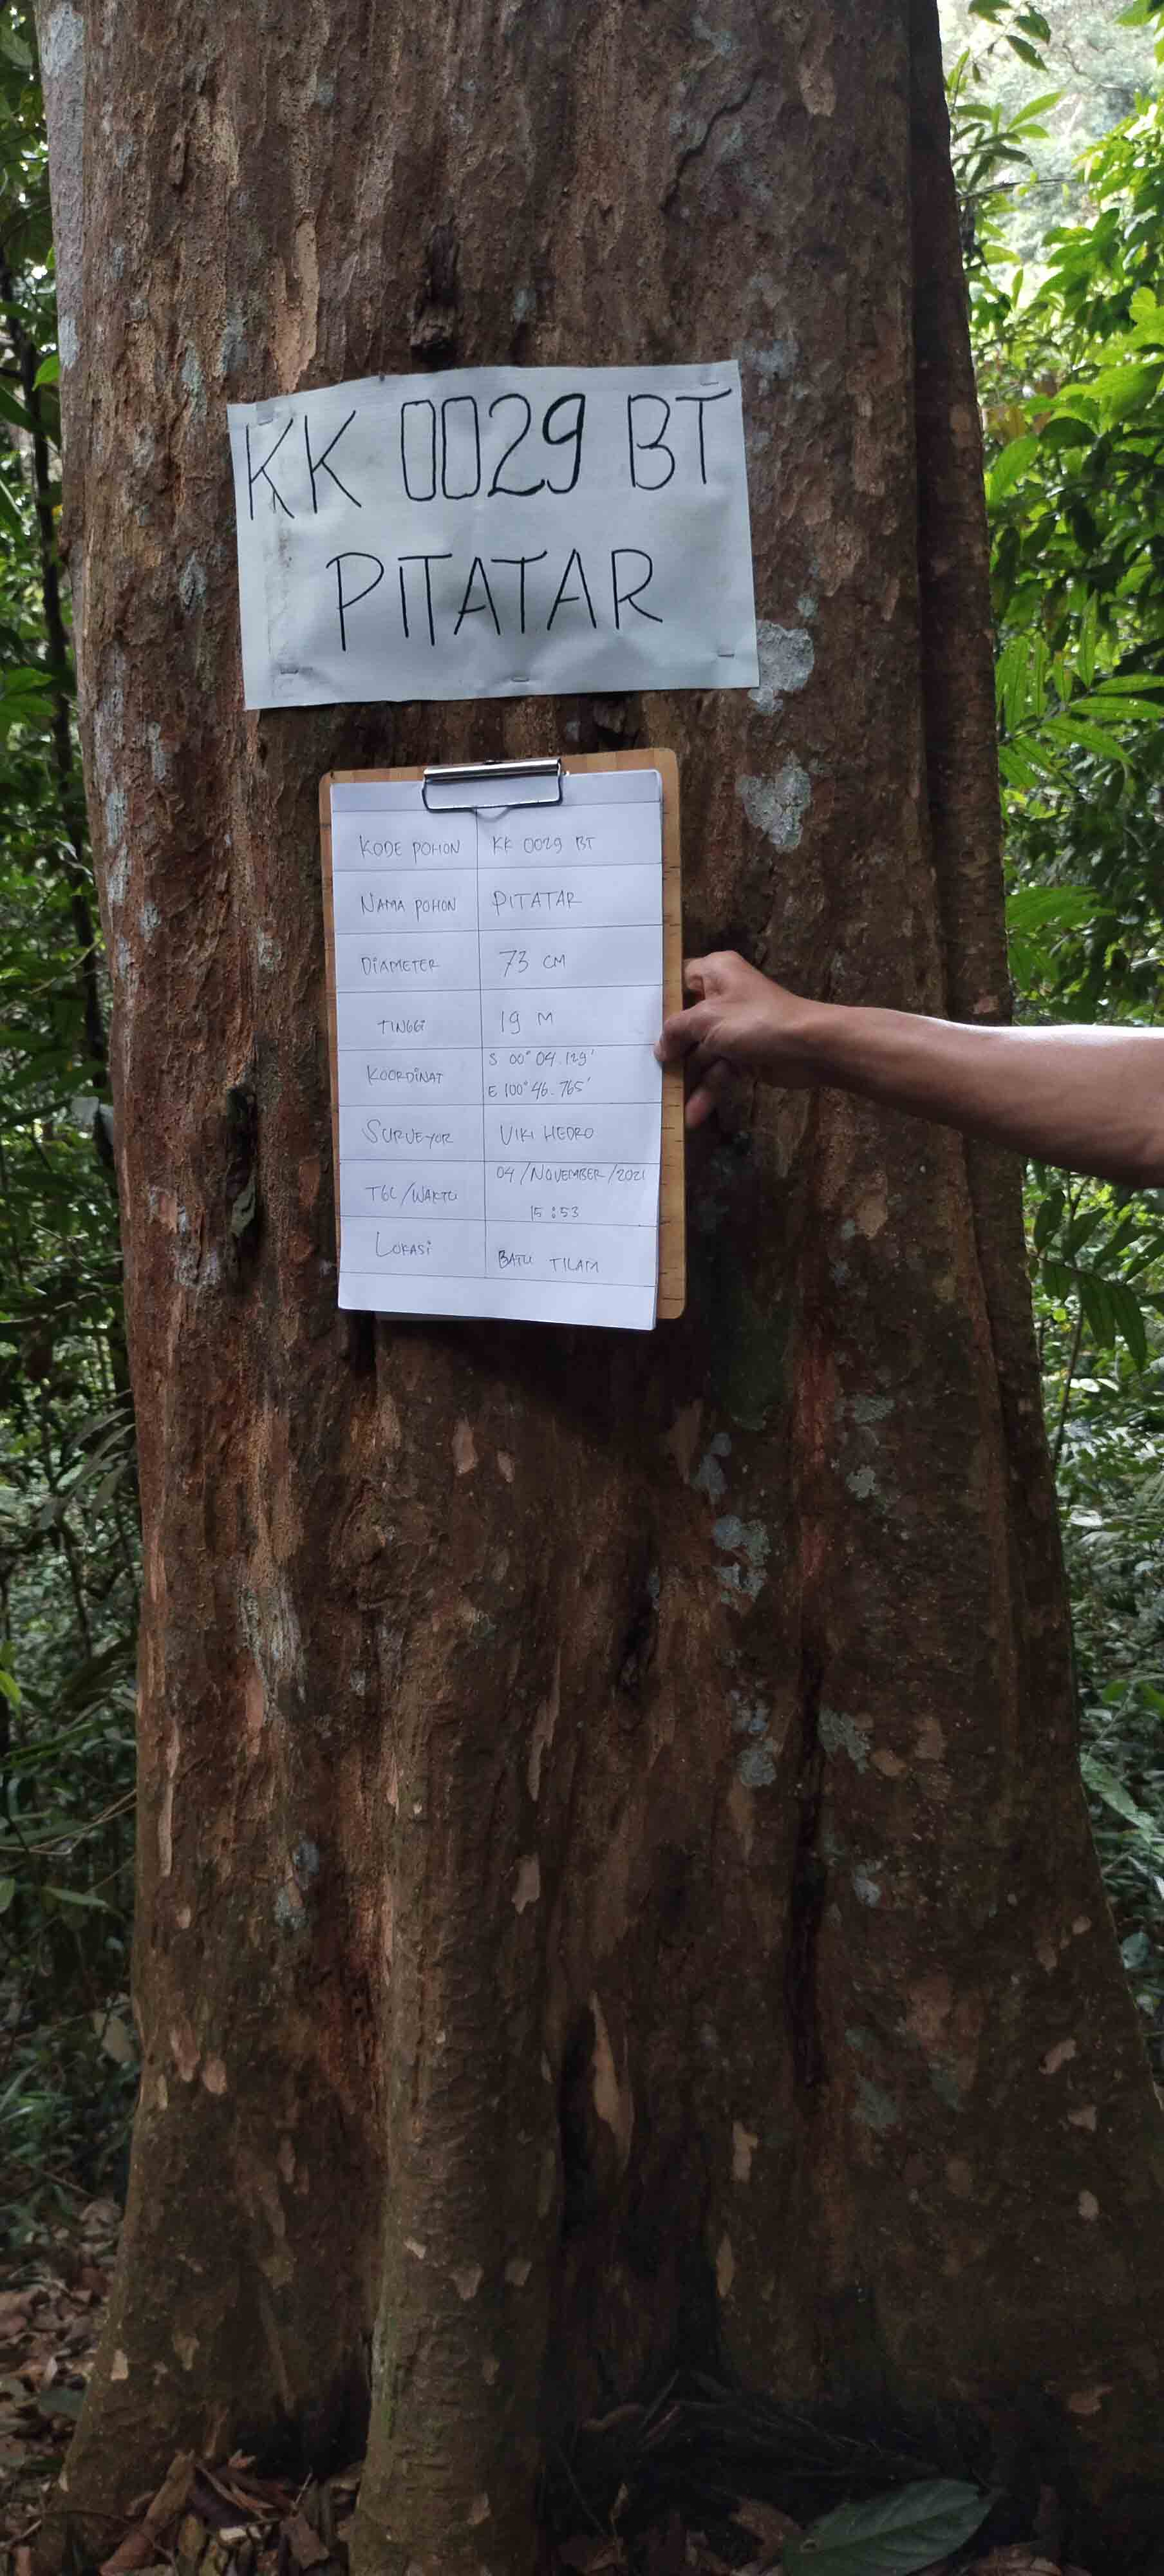 KK 0029 BT
PITATAR
KODE POHON KK 0029 BT
NAMA POHON PITATAR
DIAMETER 73 CM
TINGGI 19 M
KOORDINAT S 00° 04.129'
E 100° 46.765'
SURVEYOR VIKI HEDRO
TGL/WAKTU 04/NOVEMBER/2021
15:53
LOKASI BATU TILAM